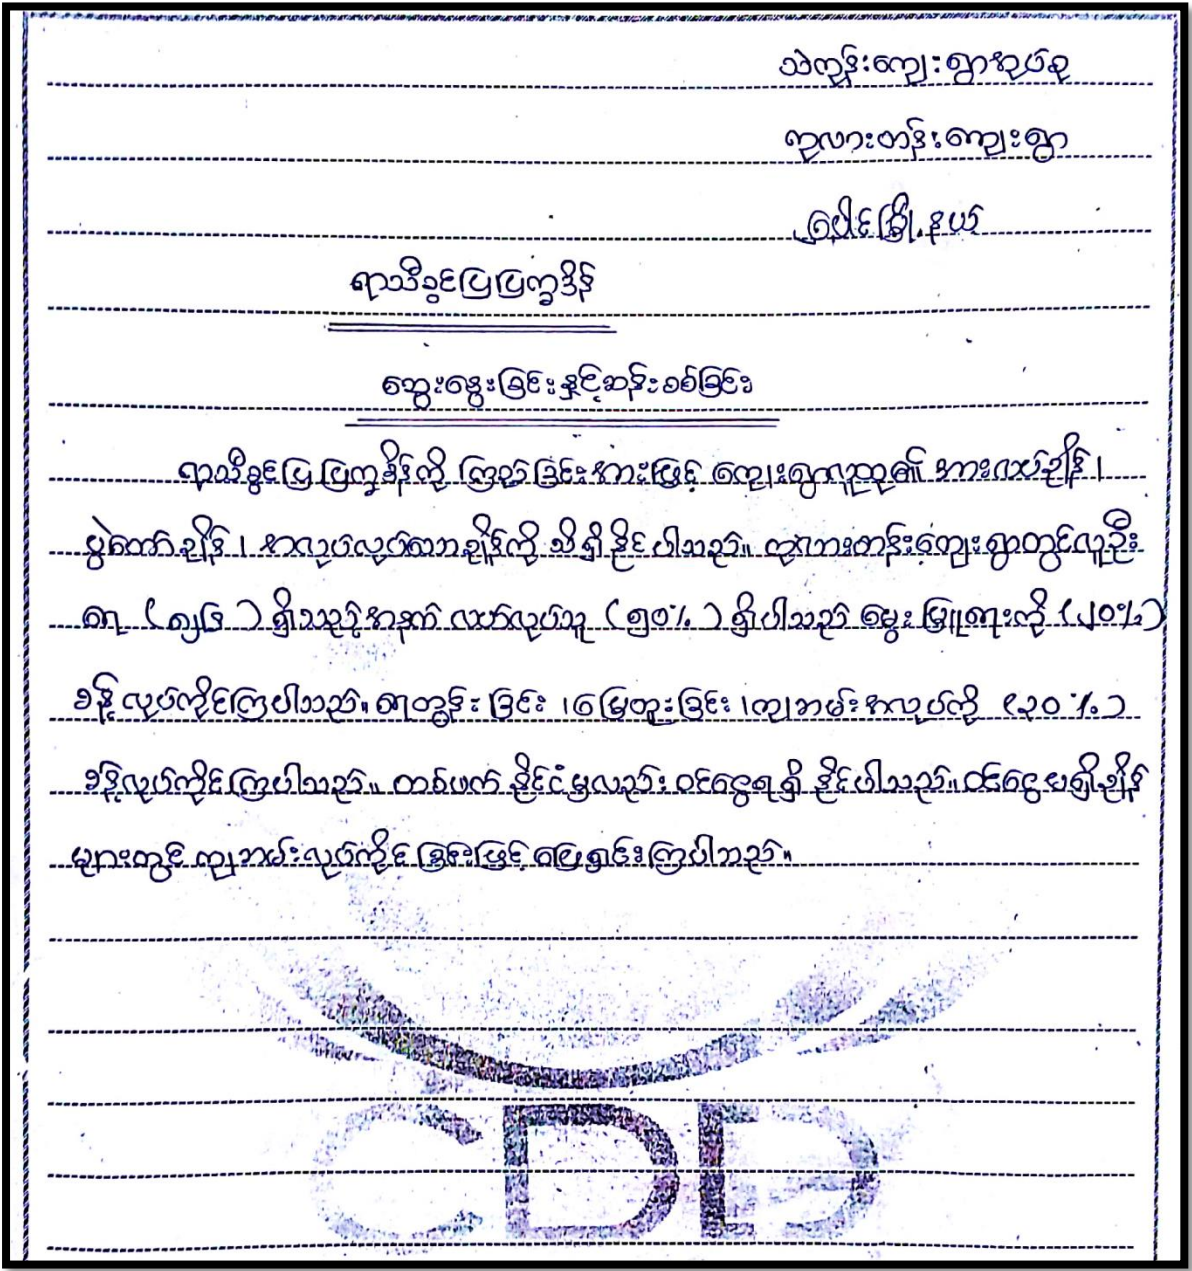 သဲကုန်းကျေးရွာအုပ်စု
ကုလားတန်းကျေးရွာ
ပေါင်မြို့နယ်
ရာသီခွင်ပြပြက္ခဒိန်
ဆွေးနွေးခြင်းနှင့်ဆန်းစစ်ခြင်း
ရာသီခွင်ပြပြက္ခဒိန်ကို ကြည့်ခြင်းအားဖြင့် ကျေးရွာလူထု၏ အားလပ်ချိန်၊
ပွဲတော်ချိန်၊ အလုပ်လုပ်သောချိန်ကို သိရှိနိုင်ပါသည်။ ကုလားတန်းကျေးရွာတွင်လူဦး
ရေ ( ၅၂၆ ) ရှိသည့်အနက် လယ်လုပ်သူ ( ၅၀% ) ရှိပါသည် မွေးမြူရေးကို (၂၀%)
ခန့်လုပ်ကိုင်ကြပါသည်။ ရေတွန်းခြင်း ၊မြေတူးခြင်း ၊ကျဘမ်းအလုပ်ကို (၃၀%)
ခန့်လုပ်ကိုင်ကြပါသည်။ တစ်ဖက်နိုင်ငံမှလည်းဝင်ငွေရရှိနိုင်ပါသည်။ ဝင်ငွေမရှိချိန်
များတွင် ကျဘမ်းလုပ်ကိုင်ခြင်းဖြင့် ဖြေရှင်းကြပါသည်။
CDD